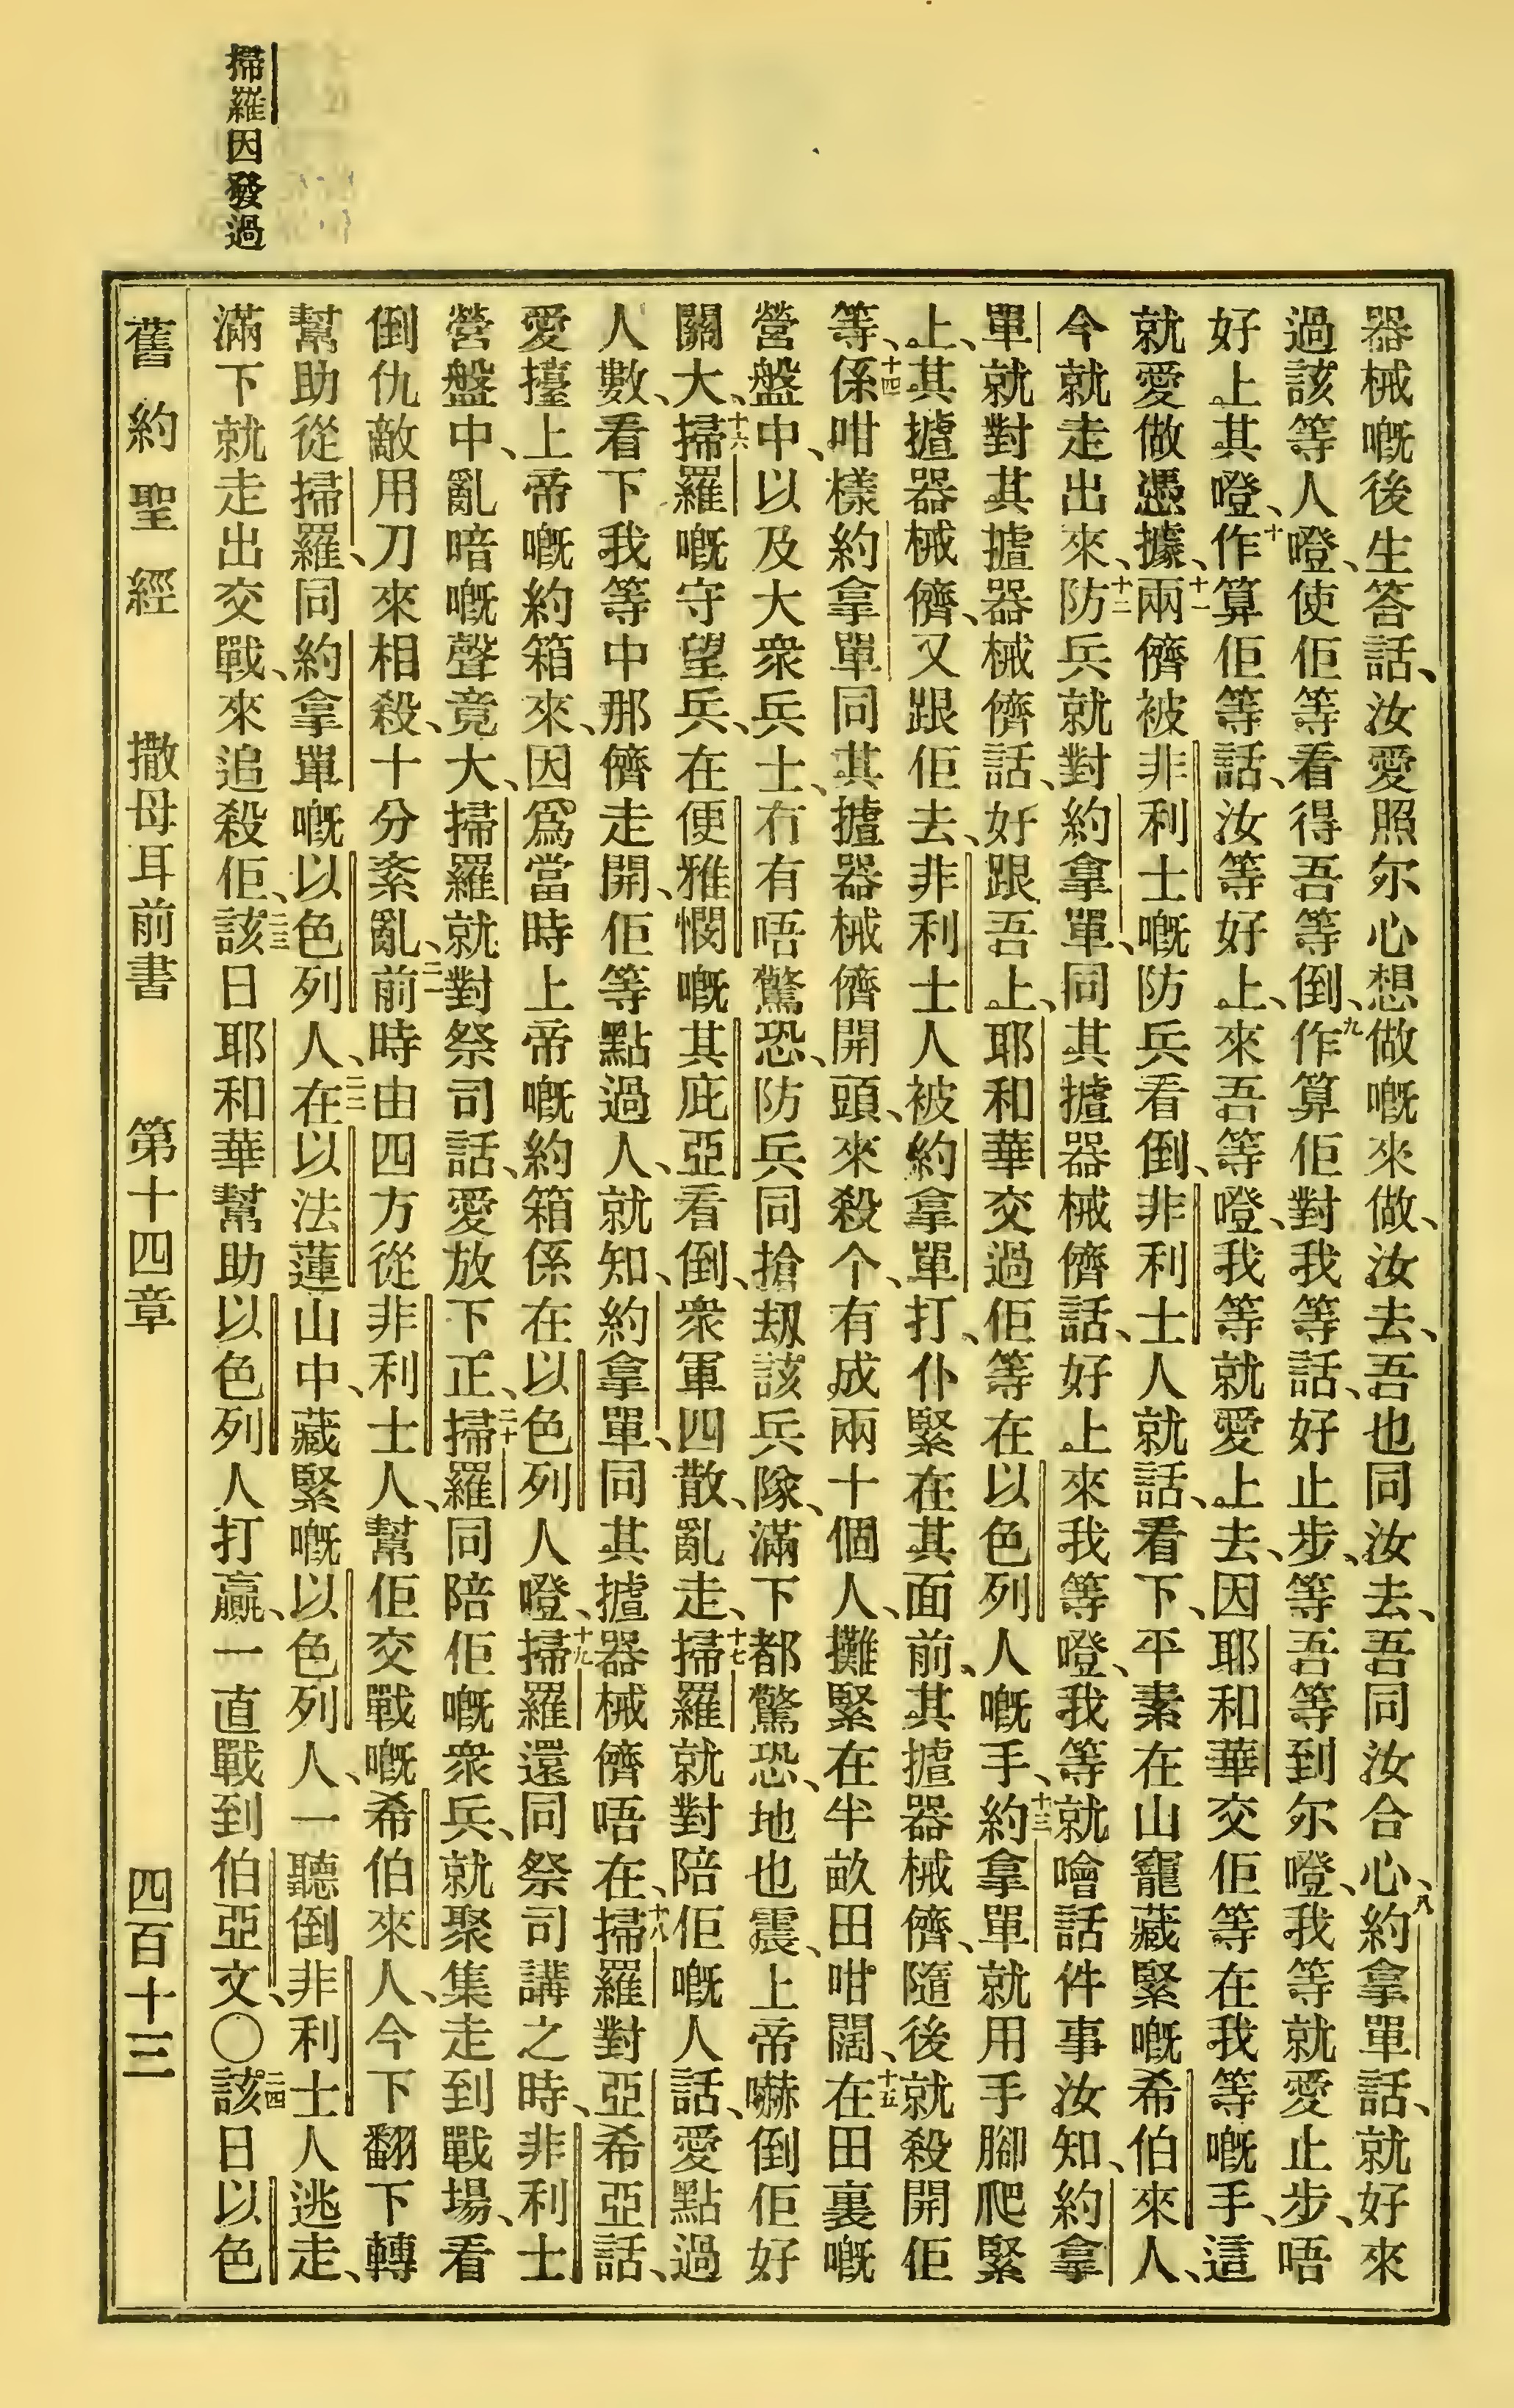 掃羅因發過
器械嘅後生答話、汝愛照尔心想做嘅來做、汝去、吾也同汝去、吾同汝合心、八約拿單話、就好來
過該等人嶝、使佢等看得吾等倒、九作算佢對我等話、好止步、等吾等到尔嶝、我等就愛止步、唔
好上其嶝、十作算佢等話、汝等好上、來吾等嶝、我等就愛上去、因耶和華交佢等在我等嘅手、這
就愛做憑據、十一兩儕被非利士嘅防兵看倒、非利士人就話、看下、平素在山竉藏緊嘅希伯來人、
今就走出來、十二防兵就對約拿單、同其攎器械儕話、好上來我等嶝、我等就噲話件事汝知、約拿
單就對其攎器械儕話、好跟吾上、耶和華交過佢等在以色列人嘅手、十三約拿單就用手腳爬緊
上、其攎器械儕、又跟佢去、非利士人被約拿單打、仆緊在其面前、其攎器械儕、隨後就殺開佢
等、十四係咁樣約拿單同其攎器械儕開頭、來殺个、有成兩十個人、攤緊在半畝田咁闊、十五在田裏嘅
營盤中、以及大衆兵士、冇有唔驚恐、防兵同搶刼該兵隊、滿下都驚恐、地也震、上帝嚇倒佢好
關大、十六掃羅嘅守望兵、在便雅憫嘅其庇亞看倒、衆軍四散、亂走、十七掃羅就對陪佢嘅人話、愛點過
人數、看下我等中那儕走開、佢等點過人、就知、約拿單、同其攎器械儕唔在、十八掃羅對亞希亞話、
愛擡上帝嘅約箱來、因爲當時上帝嘅約箱係在以色列人嶝、十九掃羅還同祭司講之時、非利士
營盤中、亂喑嘅聲竟大、掃羅就對祭司話、愛放下正、二十掃羅同陪佢嘅衆兵、就聚集走到戰場、看
倒仇敵用刀來相殺、十分紊亂、二一前時由四方從非利士人、幫佢交戰嘅希伯來人、今下翻下轉
幫助從掃羅、同約拿單嘅以色列人、二二在以法蓮山中、藏緊嘅以色列人、一聽倒非利士人逃走、
滿下就走出交戰、來追殺佢、二三該日耶和華幫助以色列人打贏、一直戰到伯亞文、〇二四該日以色
舊約聖經 撒母耳前書 第十四章 四百十三